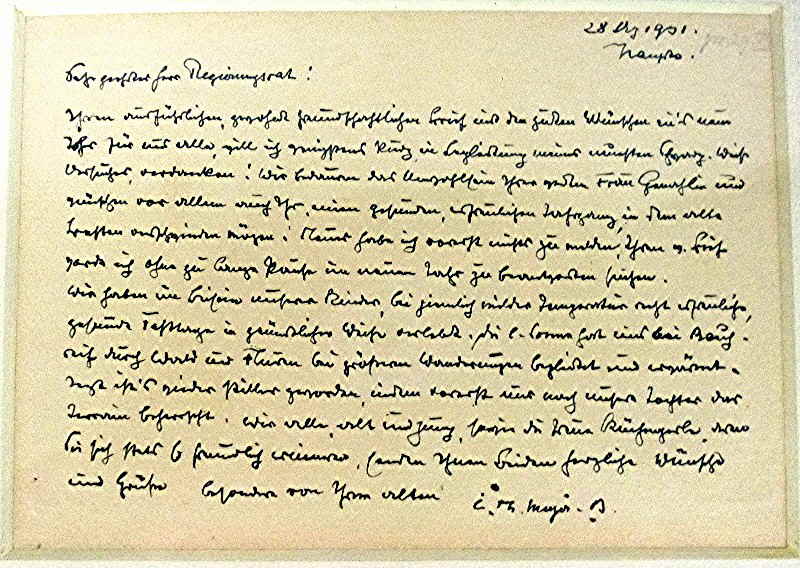 28 Dez 1931.
Sehr geehrter Herr Regierungsrat!
Ihren ausführlichen, gewohnt freundschaftlichen Brief mit den guten Wünschen in's neue
Jahr für uns alle, will ich wenigstens kurz, in Begleitung meines neuesten
verdanken! Wir bedauern das Unwohlsein Ihrer werten Frau Gemahlin und
wünschen vor allem auch Ihr, einen gesunden, erfreulichen Jahrgang, in dem alle
verschwinden mögen! Neues habe ich vorerst nichts zu melden, Ihren w. Brief
werde ich ohne zu lange Pause im neuen Jahr zu beantworten suchen.
Wir haben im Beisein unserer Kinder, bei ziemlich milder Temperatur recht erfreuliche,
gesunde Festtage in gemütlicher Weise verlebt. Die l. Sonne hat uns bei Rauh-
reif durch Wald und Fluren bei größern Wanderungen begleitet und erwärmt.
Jetzt ist's wieder stiller geworden, indem vorerst nur noch unsere Tochter das
Terrain beherrscht. Wir alle, alt und jung, sowie die treue Küchenperle, deren
Sie sich stets so freundlich erinnern, senden Ihnen beiden herzliche Wünsche
und Grüße besonders von Ihrem alten